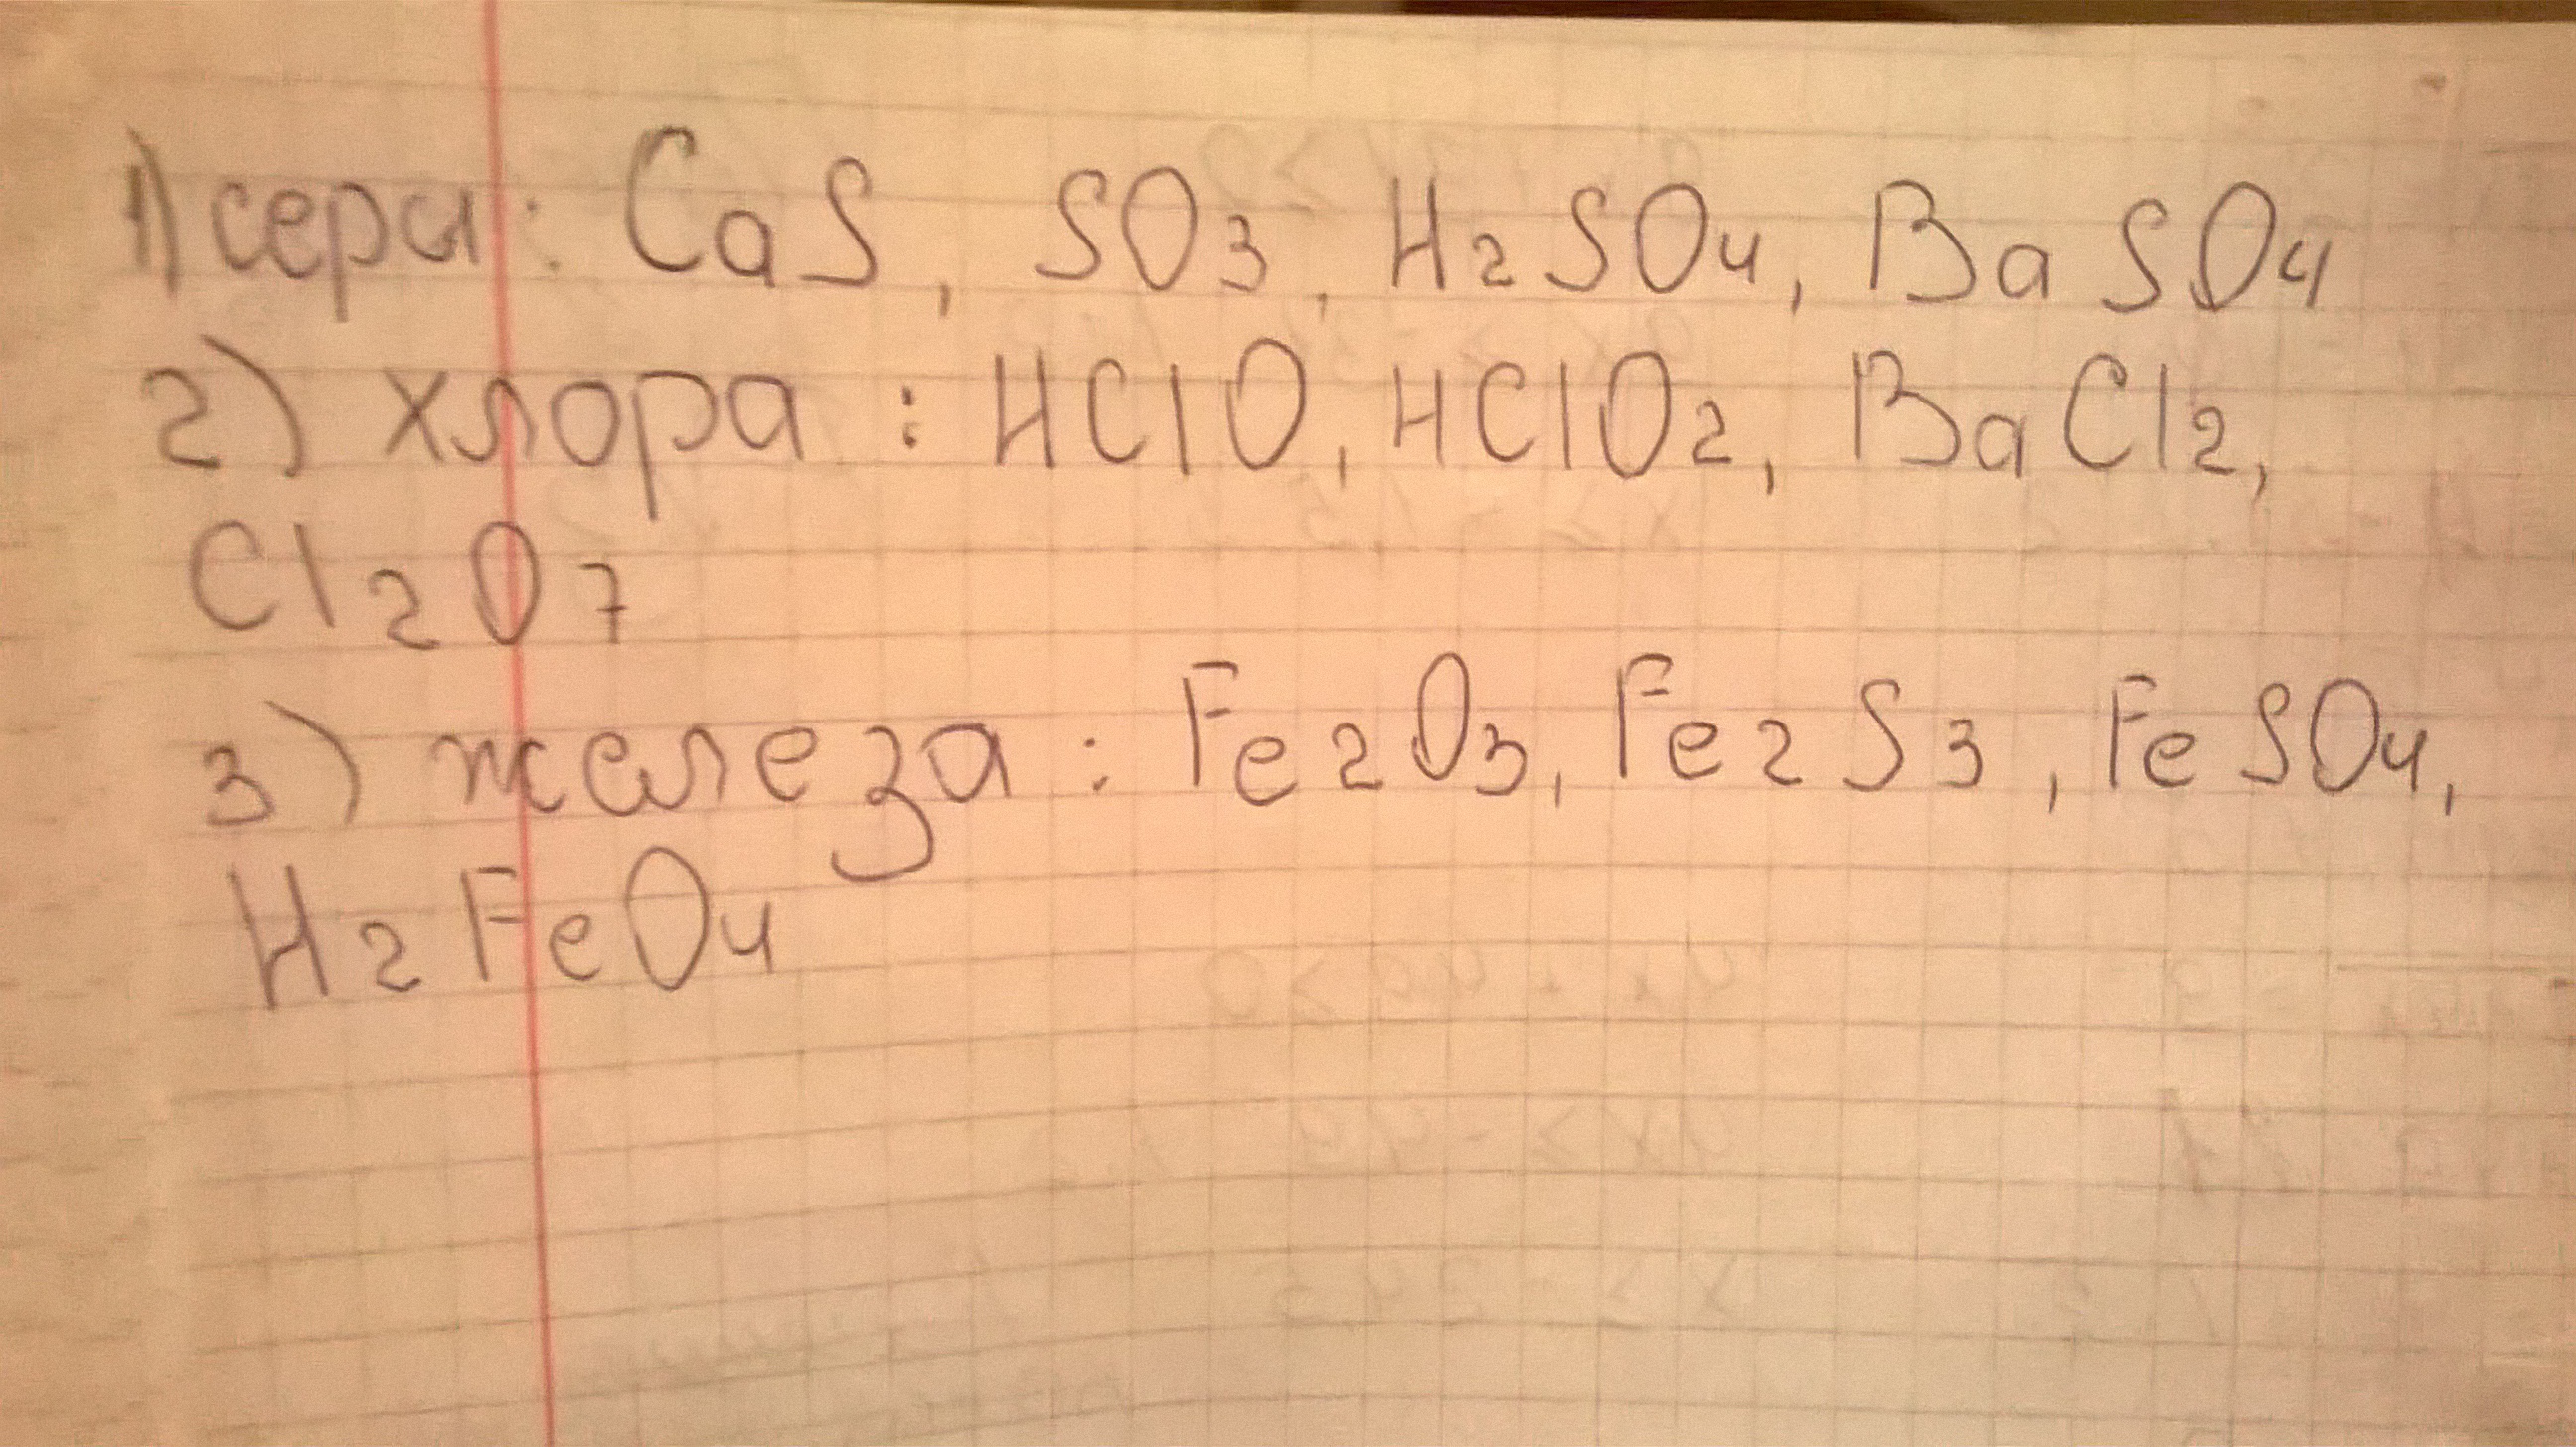 1) серы: CaS, SO3, H2SO4, BaSO4
2) хлора : HClO, HClO2, BaCl2,
Cl2O7
3) железа : Fe2O3, Fe2S3, FeSO4,
H2FeO4